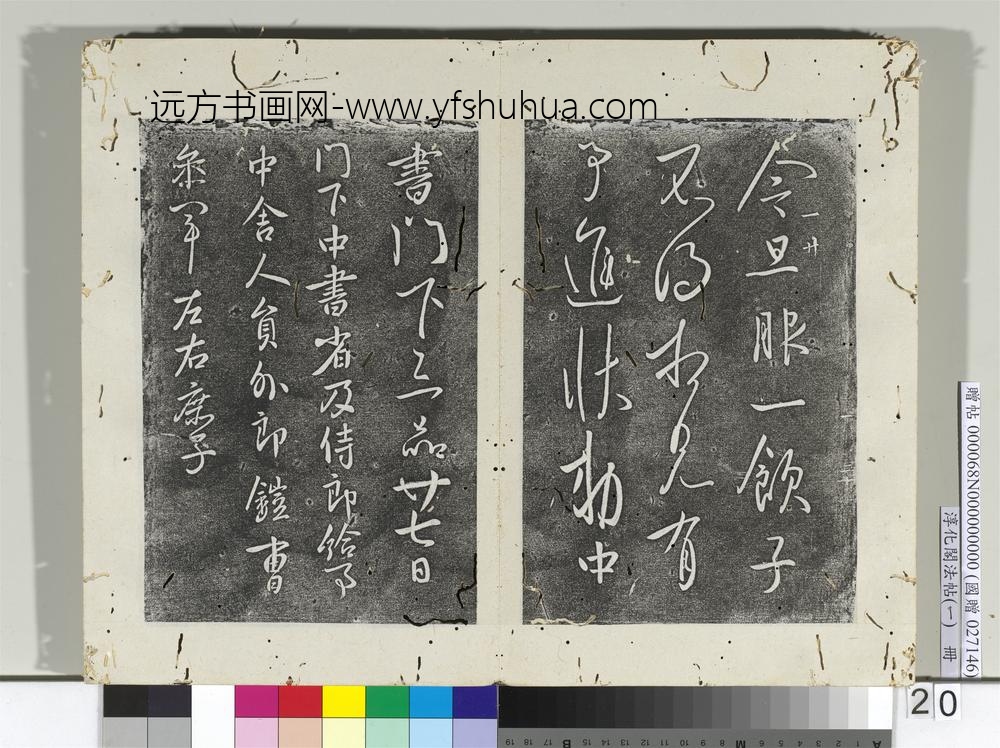 远方书画网-www.yfshuhua.com
今旦眼一飲子
不得相見有
事進狀勅中
書門下三品廿七日
門下中書省及侍郎給事
中舍人員外郎鎧曹
參軍左右庶子
一廿
贈帖 000068N000000000 (國贈 027146)
淳化閣法帖(一) 冊
20
19 18 17 16 15 B 12 11 10 9 8 7 M 6 5 4 3 2 1 A